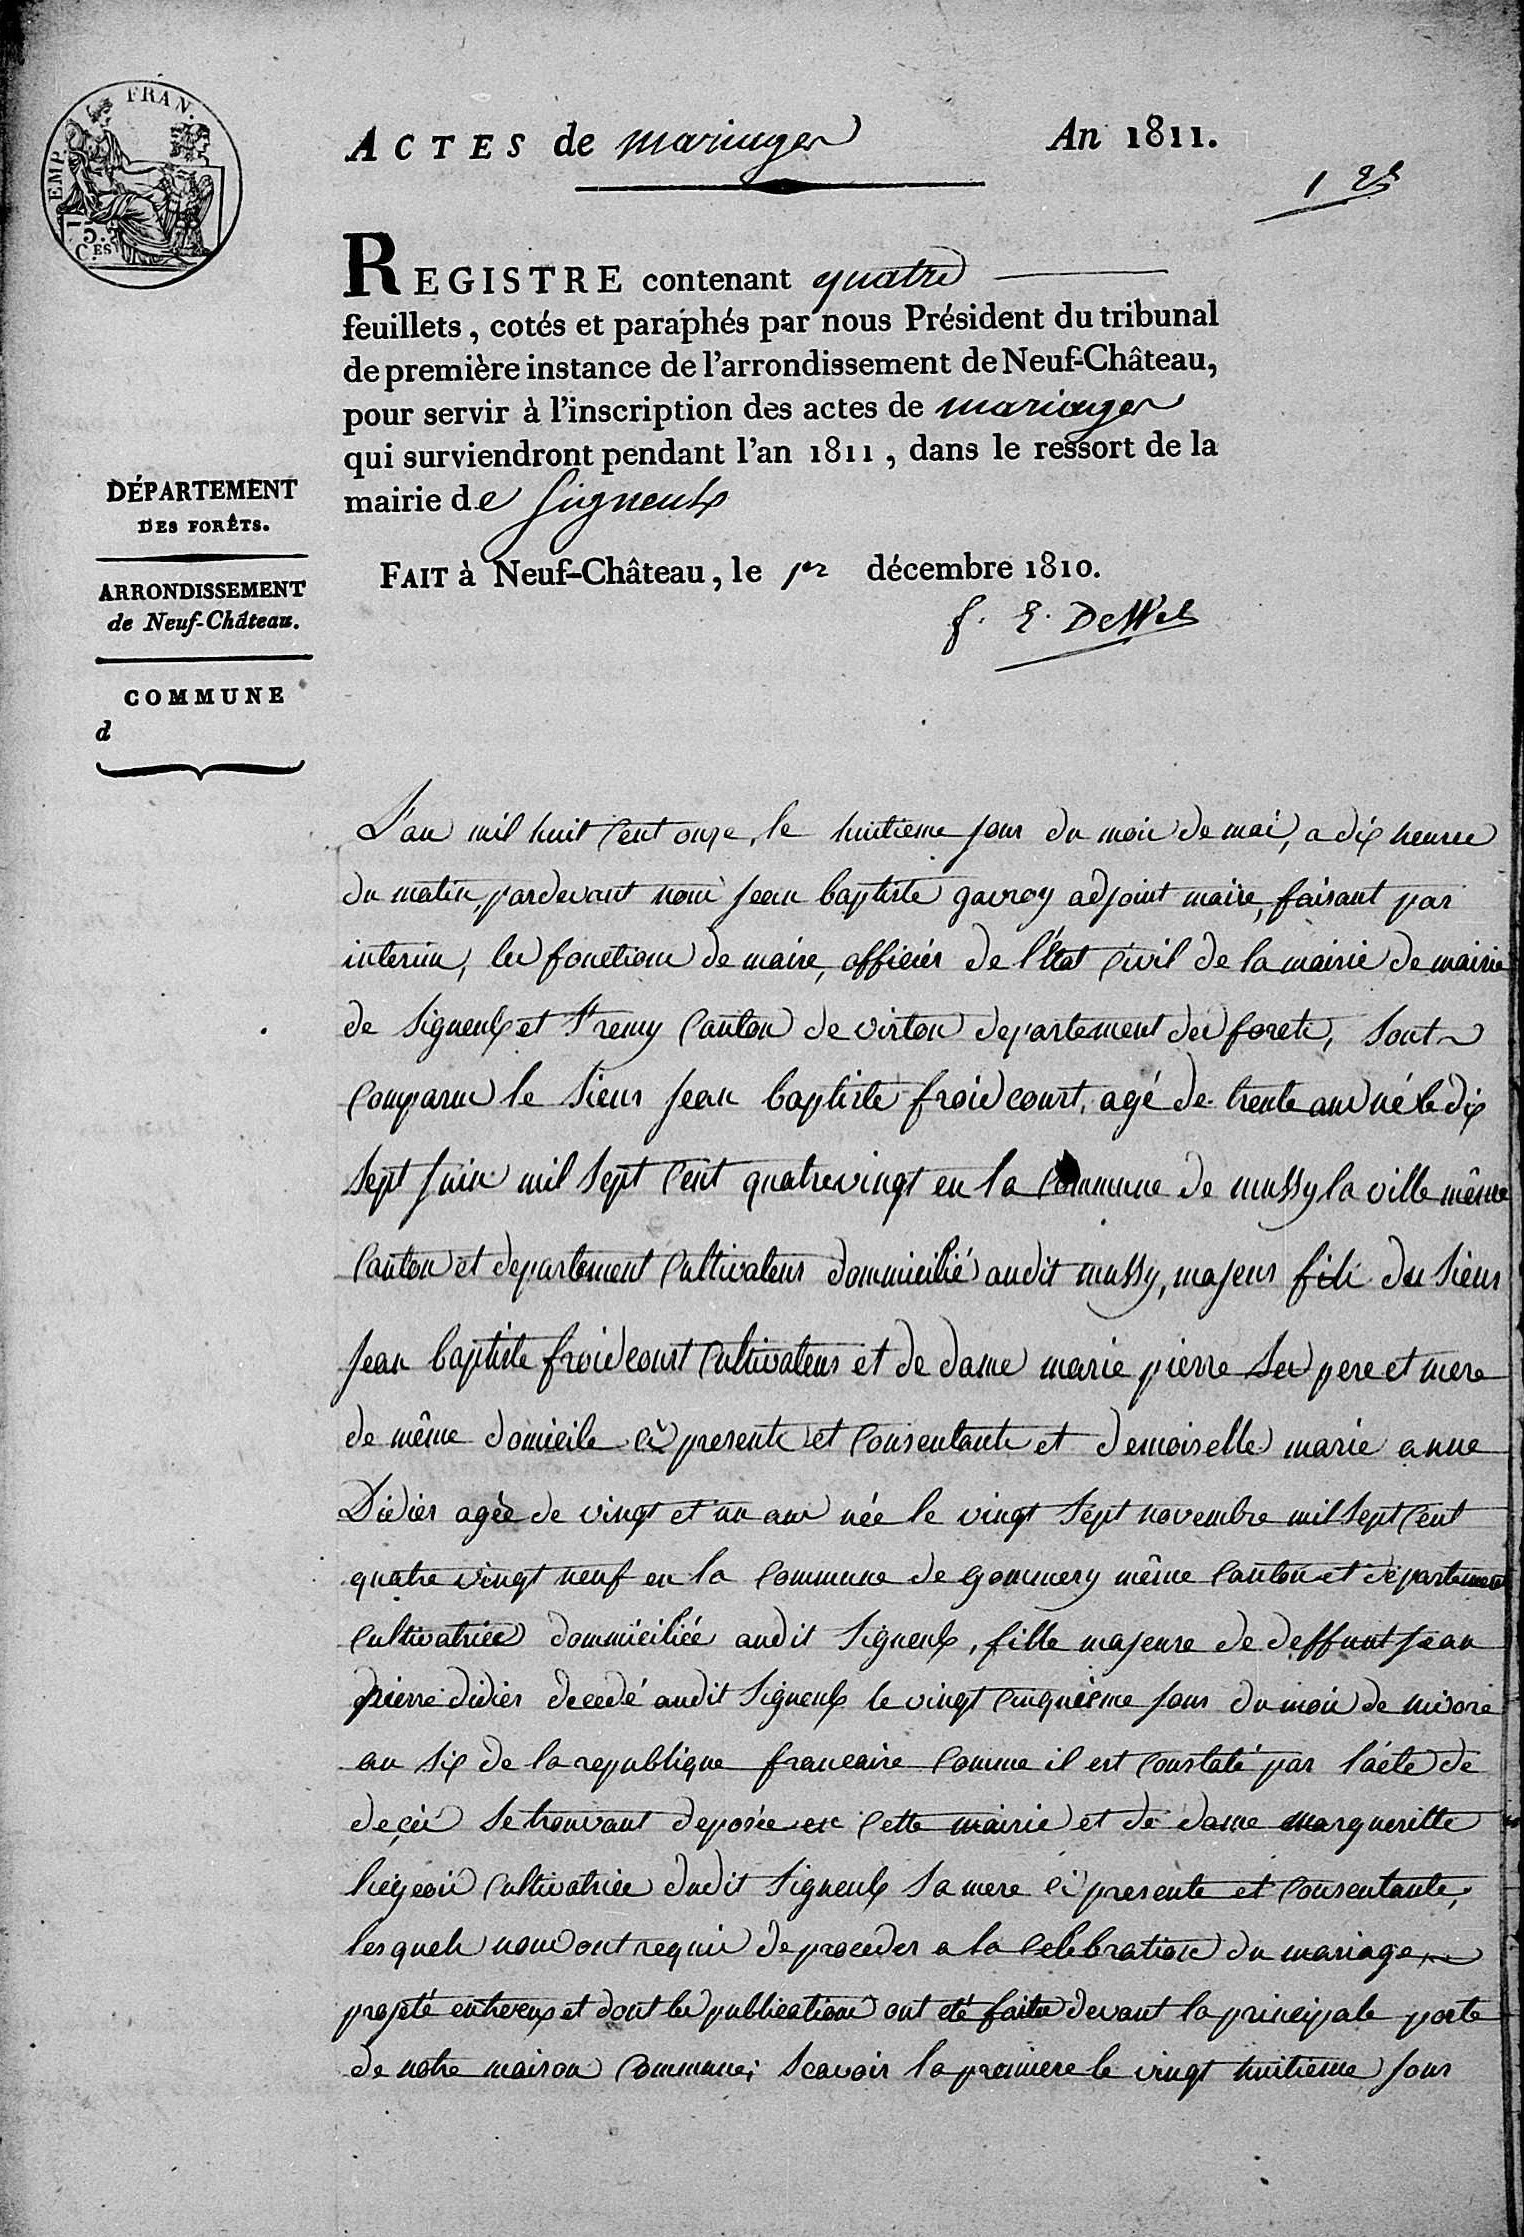 EMP. FRAN.
15
C.ES
ACTES de mariages An 1811.
1 er
REGISTRE contenant quatre
feuillets, cotés et paraphés par nous Président du tribunal
de première instance de l'arrondissement de Neuf-Château,
pour servir à l'inscription des actes de mariages
qui surviendront pendant l'an 1811, dans le ressort de la
mairie de Signeulx
FAIT à Neuf-Château, le 1er décembre 1810.
DÉPARTEMENT
DES FORÊTS.
ARRONDISSEMENT
de Neuf-Château.
COMMUNE
d
L'an mil huit cent onze, le huitieme jour du mois de mai, a dix heures
du matin, pardevant nous jean baptiste gavroy adjoint maire, faisant par
interim, les fonctions de maire, officier de l'État civil de la mairie de mairie
de Signeulx et St remy canton de virton departement des forets, sont
comparus le sieur jean baptiste froidcourt, agé de trente ans né le dix
sept juin mil sept cent quatrevingt en la commune de mussy la ville même
canton et departement cultivateur dommicilié audit mussy, majeur fils du sieur
jean baptiste froidcourt cultivateur et de dame marie pierre ses pere et mere
de même domicile ci presents et consentants et demoiselle marie anne
Didier agée de vingt et un ans née le vingt sept novembre mil sept cent
quatre vingt neuf en la commune de gommery même canton et departement
cultivatrice dommiciliée audit Signeulx, fille majeure de deffunt jean
pierre didier decedé audit Signeulx le vingt cinquième jour du mois de nivose
an six de la republique francaise comme il est constaté par l'acte de
decès se trouvant deposée en cette mairie et de dame margueritte
liegeois cultivatrice dudit Signeulx sa mere ci presente et consentante,
lesquels nous ont requis de proceder a la celebration du mariage
projeté entreeux et dont les publications ont eté faites devant la principale porte
de notre maison commune; scavoir la premiere le vingt huitieme jour